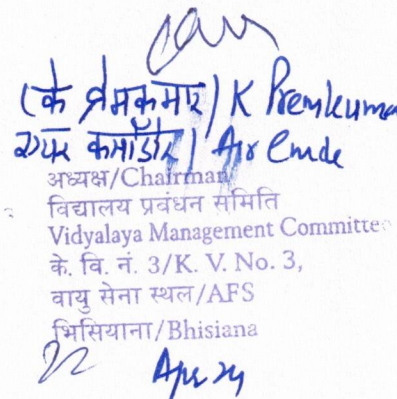 (के प्रेमकुमार) K Premkumar
एयर कमॉडोर / Air Cmde
अध्यक्ष/Chairman
विद्यालय प्रबंधन समिति
Vidyalaya Management Committee
के. वि. नं. 3/K. V. No. 3,
वायु सेना स्थल/AFS
भिसियाना/Bhisiana
22 Apr 24